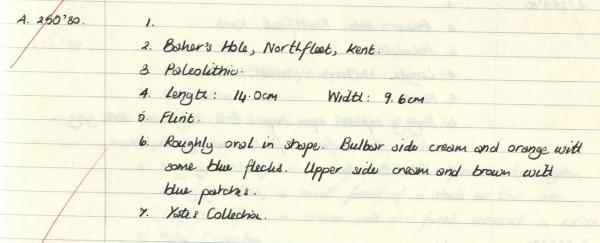 A. 250'80. 1.
2. Baker's Hole, Northfleet, Kent.
3. Paleolithic.
4. Length: 14.0cm Width: 9.6cm
5. Flint.
6. Roughly oval in shape. Bulbar side cream and orange with
some blue flecks. Upper side cream and brown with
blue patches.
7. Yates Collection.